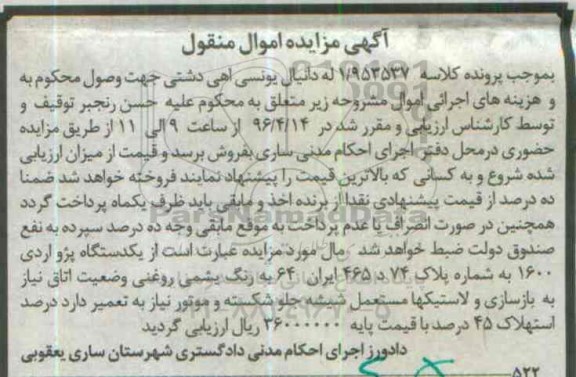 آگهی مزایده اموال منقول
بموجب پرونده کلاسه ۱/۹۵۳۵۳۷ له دانیال یونسی اهی دشتی جهت وصول محکوم به
و هزینه های اجرائی اموال مشروحه زیر متعلق به محکوم علیه حسن رنجبر توقیف و
توسط کارشناس ارزیابی و مقرر شد در ۹۶/۴/۱۴ از ساعت ۹ الی ۱۱ از طریق مزایده
حضوری درمحل دفتر اجرای احکام مدنی ساری بفروش برسد و قیمت از میزان ارزیابی
شده شروع و به کسانی که بالاترین قیمت را پیشنهاد نمایند فروخته خواهد شد ضمنا
ده درصد از قیمت پیشنهادی نقدا از برنده اخذ و مابقی باید ظرف یکماه پرداخت گردد
همچنین در صورت انصراف یا عدم پرداخت به موقع مابقی وجه ده درصد سپرده به نفع
صندوق دولت ضبط خواهد شد مال مورد مزایده عبارت است از یکدستگاه پژو اردی
۱۶۰۰ به شماره پلاک ۷۴ د ۴۶۵ ایران ۶۴ به رنگ یشمی روغنی وضعیت اتاق نیاز
به بازسازی و لاستیکها مستعمل شیشه جلو شکسته و موتور نیاز به تعمیر دارد درصد
استهلاک ۴۵ درصد با قیمت پایه ۳۶۰۰۰۰۰۰ ریال ارزیابی گردید
دادورز اجرای احکام مدنی دادگستری شهرستان ساری یعقوبی
۵۲۲
ParsNamadData